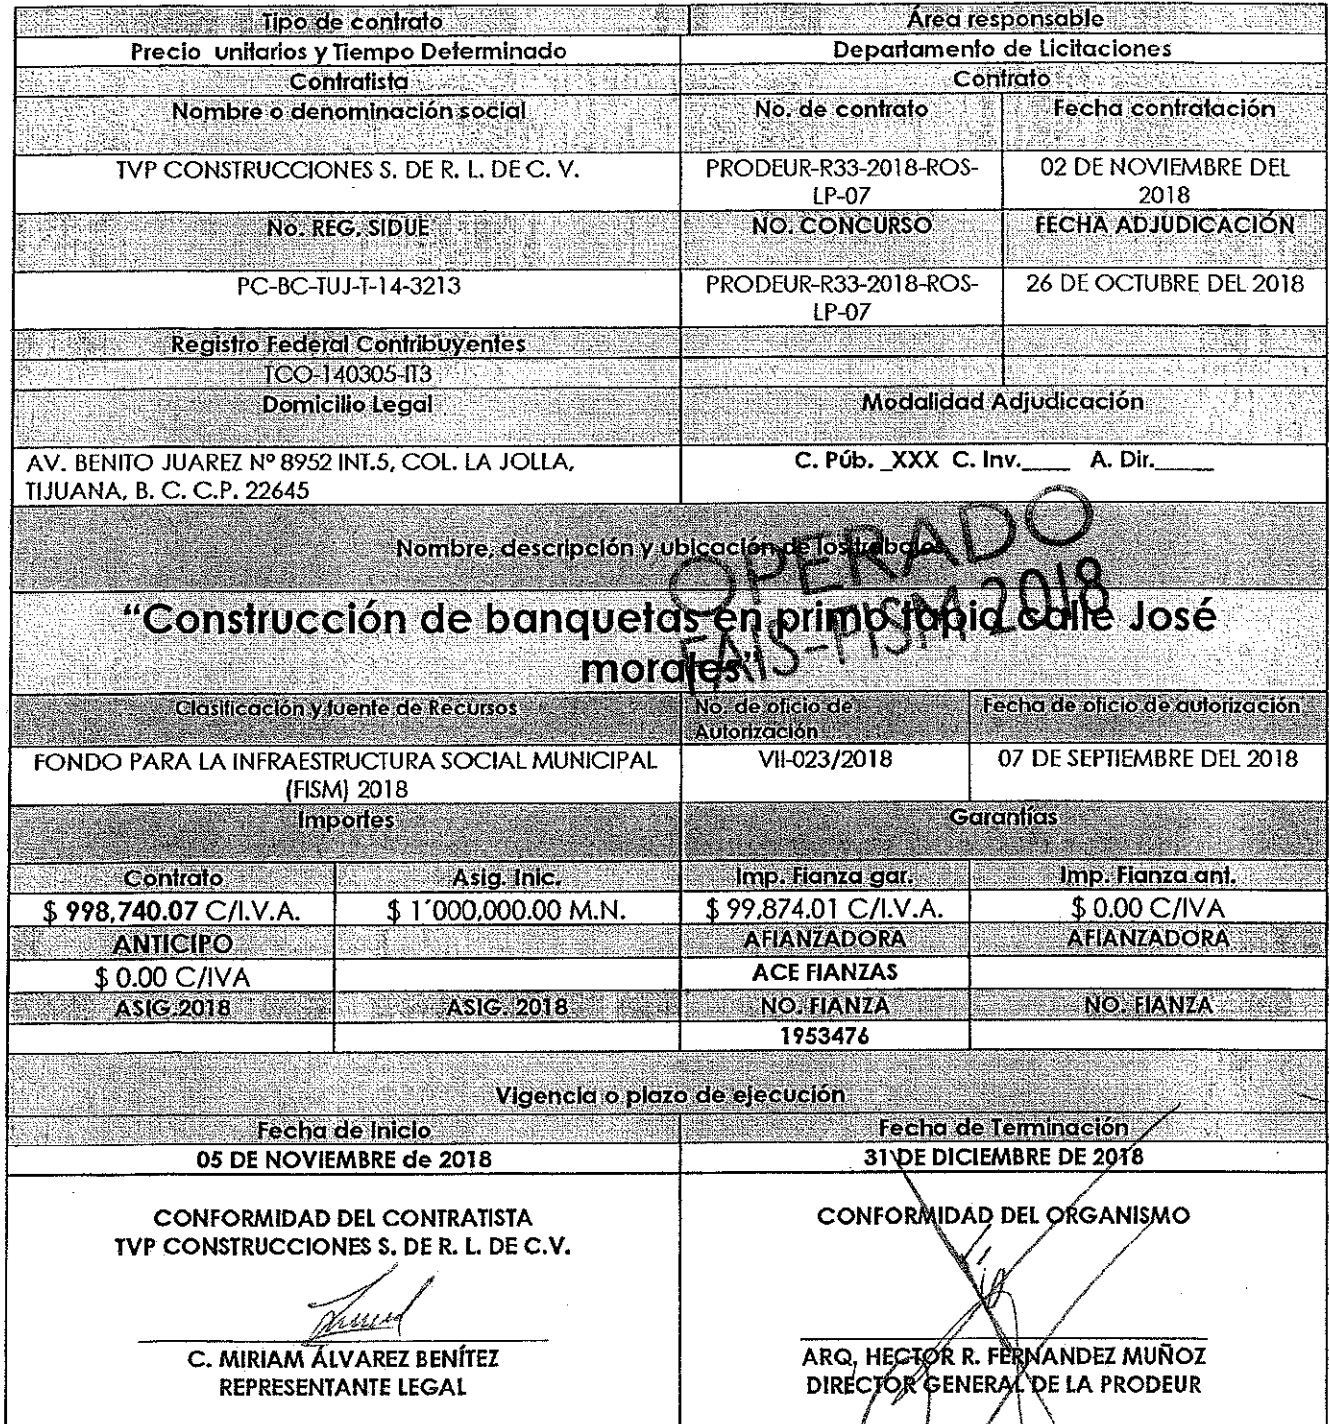 Tipo de contrato Área responsable
Precio unitarios y Tiempo Determinado Departamento de Licitaciones
Contratista Contrato
Nombre o denominación social No. de contrato Fecha contratación
TVP CONSTRUCCIONES S. DE R. L. DE C. V. PRODEUR-R33-2018-ROS- 02 DE NOVIEMBRE DEL
LP-07 2018
No. REG. SIDUE NO. CONCURSO FECHA ADJUDICACIÓN
PC-BC-TUJ-T-14-3213 PRODEUR-R33-2018-ROS- 26 DE OCTUBRE DEL 2018
LP-07
Registro Federal Contribuyentes
TCO-140305-IT3
Domicilio Legal Modalidad Adjudicación
AV. BENITO JUAREZ Nº 8952 INT.5, COL. LA JOLLA, C. Púb. _XXX C. Inv.____ A. Dir._____
TIJUANA, B. C. C.P. 22645
OPERADO
FAIS-FISM 2018
Nombre, descripción y ubicación de los trabajos
“Construcción de banquetas en primo tapia calle José
morales”
Clasificación y fuente de Recursos No. de oficio de Fecha de oficio de autorización
Autorización
FONDO PARA LA INFRAESTRUCTURA SOCIAL MUNICIPAL VII-023/2018 07 DE SEPTIEMBRE DEL 2018
(FISM) 2018
Importes Garantías
Contrato Asig. Inic. Imp. Fianza gar. Imp. Fianza ant.
$ 998,740.07 C/I.V.A. $ 1´000,000.00 M.N. $ 99,874.01 C/I.V.A. $ 0.00 C/IVA
ANTICIPO AFIANZADORA AFIANZADORA
$ 0.00 C/IVA ACE FIANZAS
ASIG.2018 ASIG. 2018 NO. FIANZA NO. FIANZA
1953476
Vigencia o plazo de ejecución
Fecha de Inicio Fecha de Terminación
05 DE NOVIEMBRE de 2018 31 DE DICIEMBRE DE 2018
CONFORMIDAD DEL CONTRATISTA CONFORMIDAD DEL ORGANISMO
TVP CONSTRUCCIONES S. DE R. L. DE C.V.
C. MIRIAM ÁLVAREZ BENÍTEZ ARQ. HECTOR R. FERNANDEZ MUÑOZ
REPRESENTANTE LEGAL DIRECTOR GENERAL DE LA PRODEUR